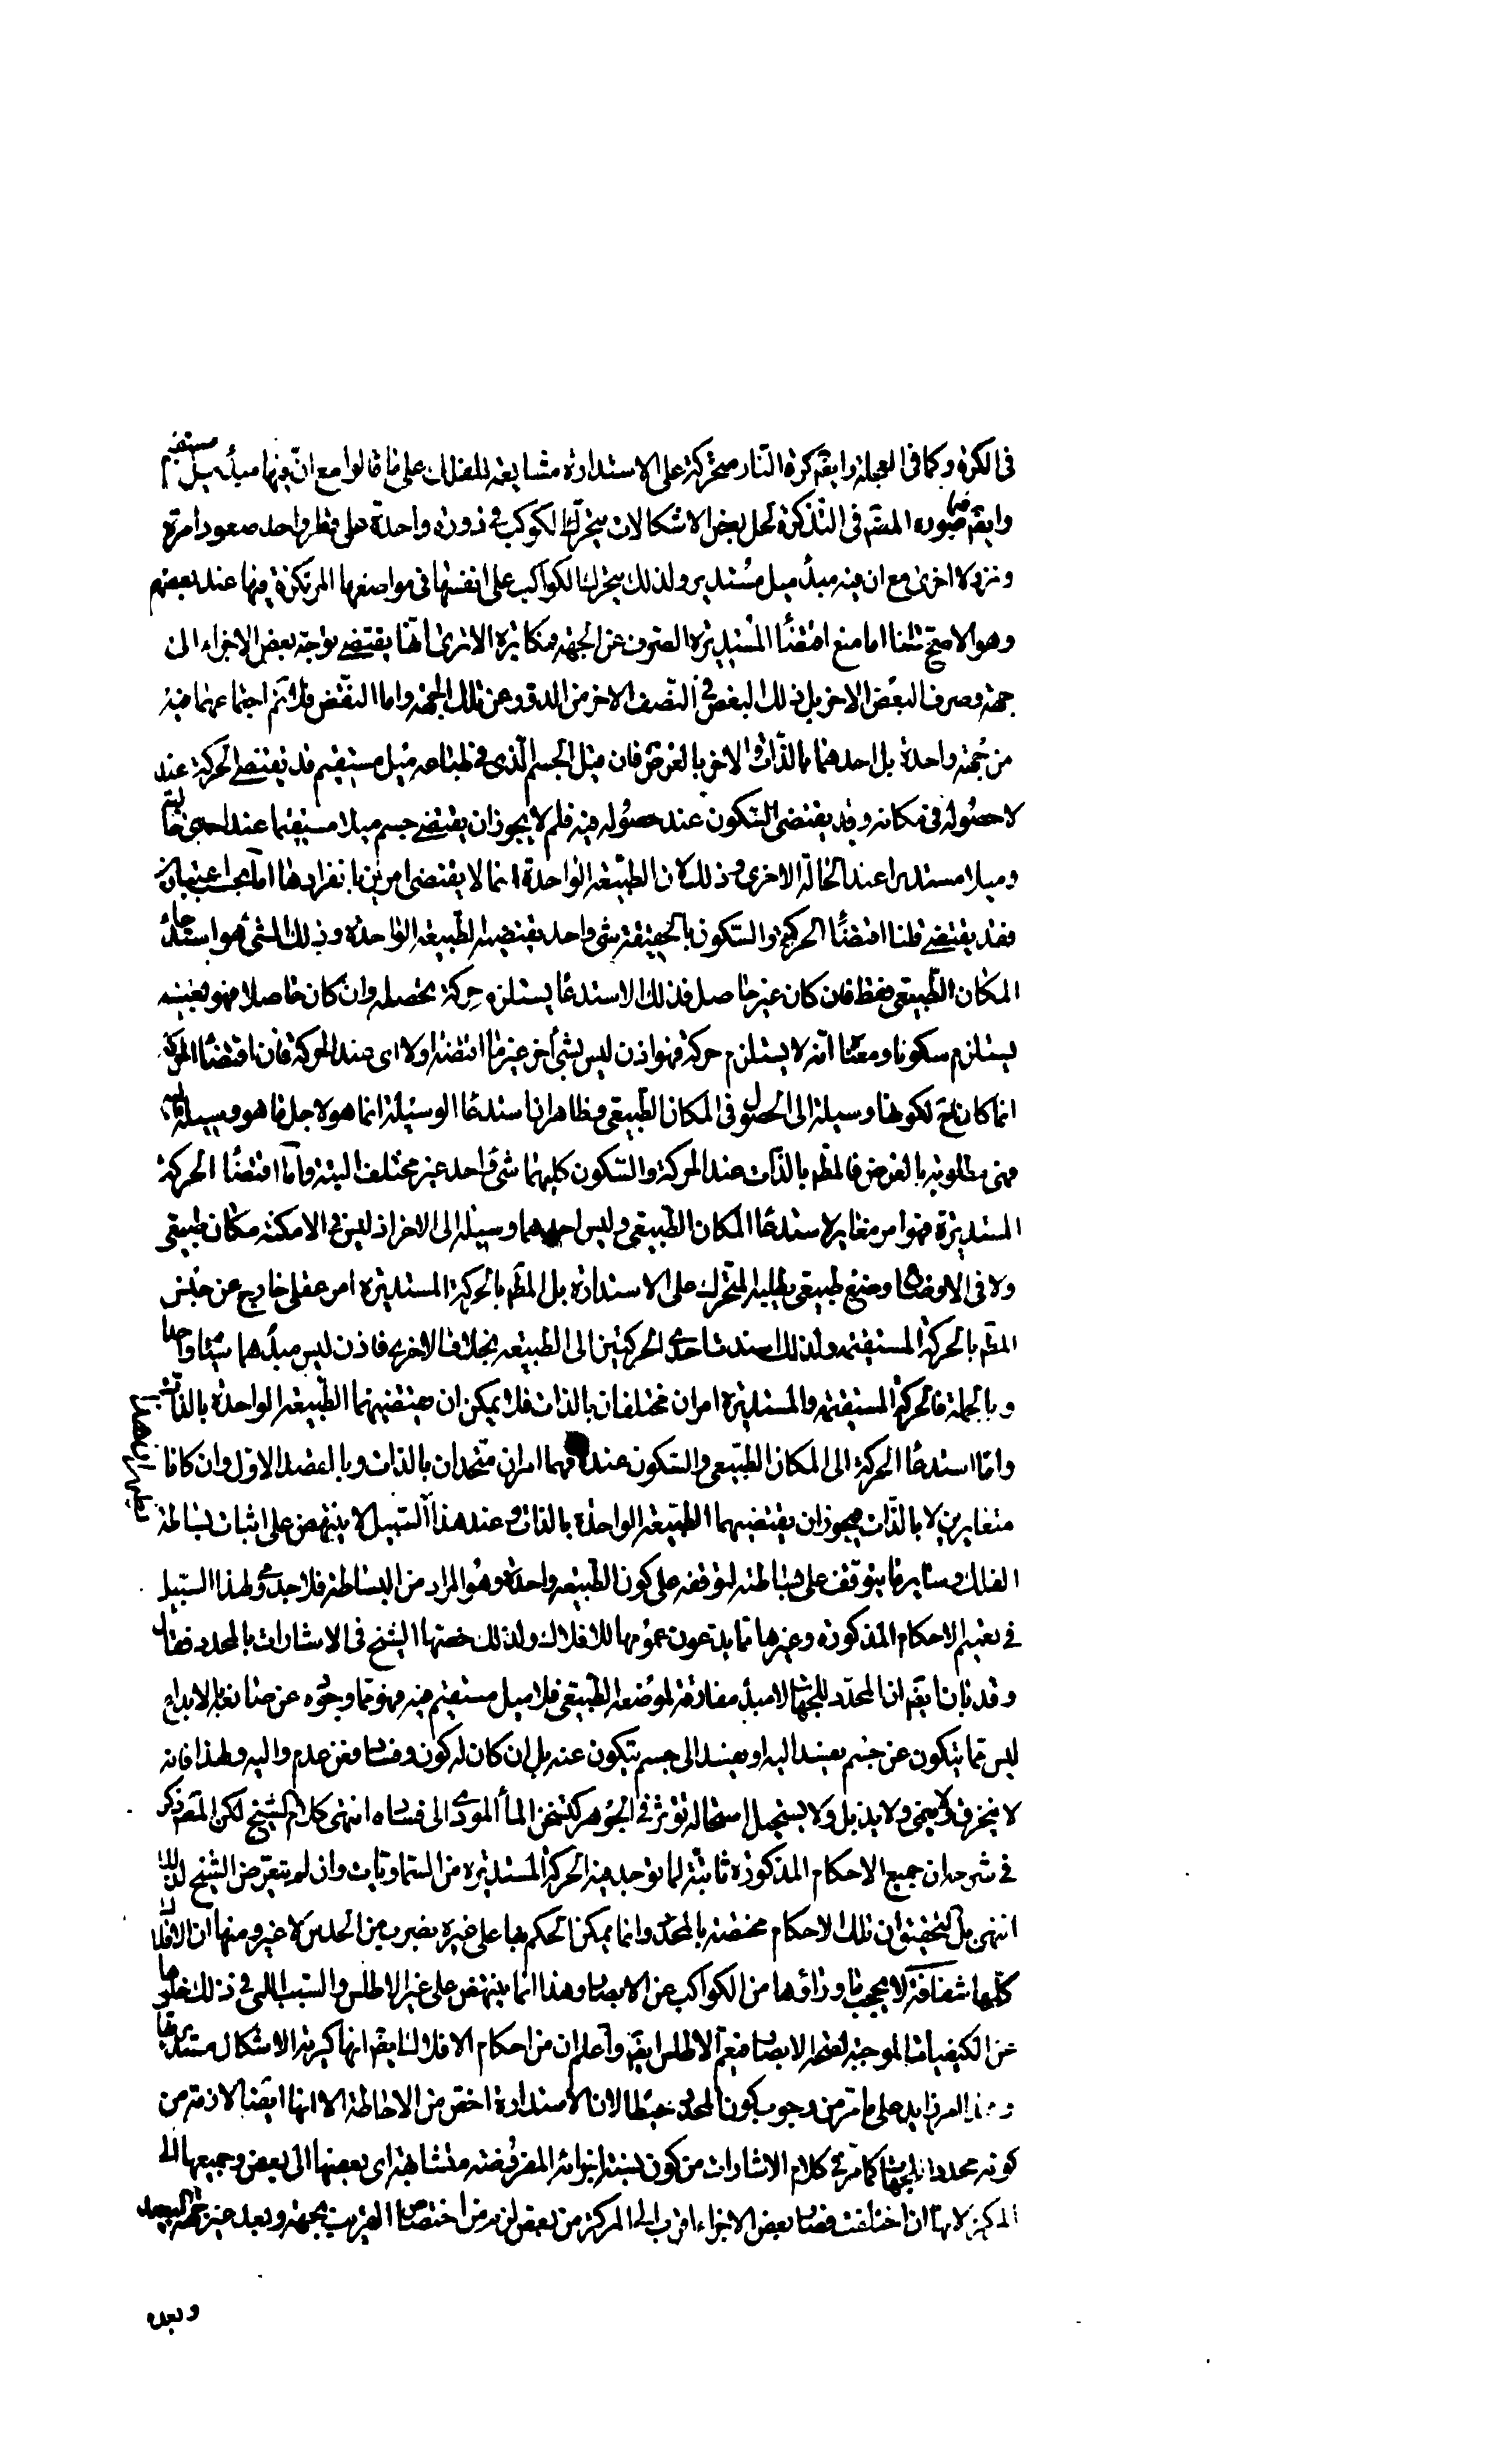 فى الكرة وكما فى العجلة وايضم كرة النار متحركة على الاستدارة مشايعة للفلك على ما قالوا مع ان فيها مبدأ ميل مستقيم
وايضم ما صوره المصم فى التذكرة لحل بعض الاشكالات يتحرك الكوكب فى ذورة واحدة على قطر واحد صعودا مرة
ونزولا اخرى مع ان فيه مبدأ ميل مستدير ولذلك يتحرك الكواكب على انفسها فى مواضعها المرتكزة فيها عند بعضهم
وهو الاصح قلنا اما منع اقتضأ المستديرة الصرف عن الجهة فمكابرة الا ترى انها يقتضى توجه بعض الاجزاء الى
جهة وصرف البعض الاخر بل ذلك البعض فى النصف الاخر من الدور عن تلك الجهة واما النقض فلا يتم اجتماعهما فيه
من جهة واحدة بل احدهما بالذات والاخر بالعرض فان ميل الجسم الذى فى طباعه ميل مستقيم قد يقتضى الحركة عند
لا حصوله فى مكانه وقد يقتضى السكون عند حصوله فيه فلم لا يجوز ان يقتضى جسم ميلا مستقيما عند احدى حالتيه
وميلا مستديرا عند الحالة الاخرى وذلك لان الطبيعة الواحدة انما لا يقتضى امرين بانفرادها اما بحسب اعتبارين
فقد يقتضى قلنا اقتضأ الحركة والسكون بالحقيقة شى واحد يقتضيه الطبيعة الواحدة وذلك الشئ هو استدعاء
المكان الطبيعى فقط فان كان غير حاصل فذلك الاستدعا يستلزم حركة تحصله وان كان حاصلا فهو بعينه
يستلزم سكونا ومعنا انه لا يستلزم حركة فهو اذن ليس بشئ اخر غير ما اقتضته اولا اى عند الحركة فان اقتضأ الحركة
انما كان لكونها وسيلة الى الحصول فى المكان الطبيعى وظاهر ان استدعا الوسيلة انما هو لاجل ما هو وسيلة اليه
فهى مطلوبة بالعرض فالمطم بالذات عند الحركة والسكون كليهما شئ واحد غير مختلف البتة واما اقتضأ الحركة
المستديرة فهو امر مغاير لاستدعأ المكان الطبيعى وليس احدهما وسيلة الى الاخر اذ ليس فى الامكنة مكان طبيعى
ولا فى الاوضاع وضع طبيعى يطلبه المتحرك على الاستدارة بل المطم بالحركة المستديرة امر عقلى خارج عن جنس
المطم بالحركة المستقيمة ولذلك استند احدى الحركتين الى الطبيعة بخلاف الاخرى فاذن ليس مبدأهما شيئا واحدا
وبالجملة فالحركة المستقيمة والمستديرة امران مختلفان بالذات فلا يمكن ان يقتضيهما الطبيعة الواحدة بالذات
واما استدعأ الحركة الى المكان الطبيعى والسكون عنده فهما امران متحدان بالذات وبالقصد الاول وان كانا
متغايرين لا بالذات فيجوز ان يقتضيهما الطبيعة الواحدة بالذات وعند هذا السبيل لا ينتهض على اثبات بساطة
الفلك وساير ما يتوقف على بساطته لتوقفه على كون الطبيعة واحدة وهو المراد من البساطة فلا جدوى لهذا السبيل
فى تعميم الاحكام المذكورة وغيرها مما يدعون عمومها للافلاك ولذلك خصها الشيخ فى الاشارات بالمحدد فقال
وقد بان ايضم ان المحدد للجهات لا مبدأ مفارقة لموضعه الطبيعى فلا ميل مستقيم فيه فهو مما وجوده عن صانعه بالابداع
ليس مما يتكون عن جسم يفسد اليه او يفسد الى جسم يتكون عنه بل ان كان له كون وفساد فعن عدم واليه ولهذا فانه
لا ينخرق ولا ينمى ولا يذبل ولا يستحيل استحالة تؤثر فى الجوهر كتسخن المأ المودى الى فساده انتهى كلام الشيخ لكن المصم ذكر
فى شرحه ان جميع الاحكام المذكورة ثابتة لما يوجد فيه الحركة المستديرة من السماويات وان لم يتعرض الشيخ لذلك
انتهى بل التحقيق ان تلك الاحكام مختصة بالمحدد وانما يمكن الحكم بها على غيره بضرب من الحدس لا غير ومنها ان الافلاك
كلها شفافة لا يحجب ما وراؤها من الكواكب عن الابصار وهذا انما ينتهض على غير الاطلس والسبب اللمى فى ذلك خلوها
عن الكيفيات الموجبة لمنع الابصار فيعم الاطلس ايضم واعلم ان من احكام الافلاك ايضم انها كرية الاشكال مستديرتها
وهذا الحكم زايد على ما مر من وجوب كون المحدد محيطا لان الاستدارة اخص من الاحاطة الا انها ايضا لازمة من
كونه محددا للجهات كما مر فى كلام الاشارات من كون نسبة اجزائه المفروضة متشابهة اى بعضها الى بعض وجميعها الى
المركز لانها ان اختلفت فصار بعض الاجزاء اقرب الى المركز من بعض لزم من اختصاص القريب بجهة وبعد غير جهة البعيد
وبعده